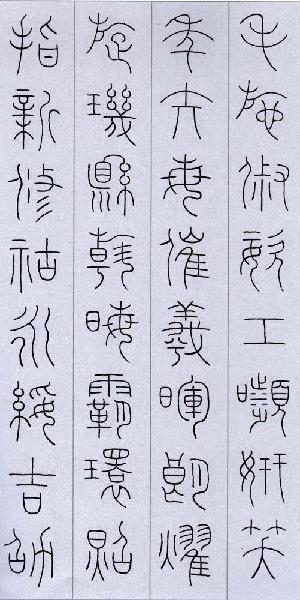 毛施淑姿工顰妍笑
年矢每催羲暉朗耀
旋璣懸斡晦魄環照
指薪修祜永綏吉劭